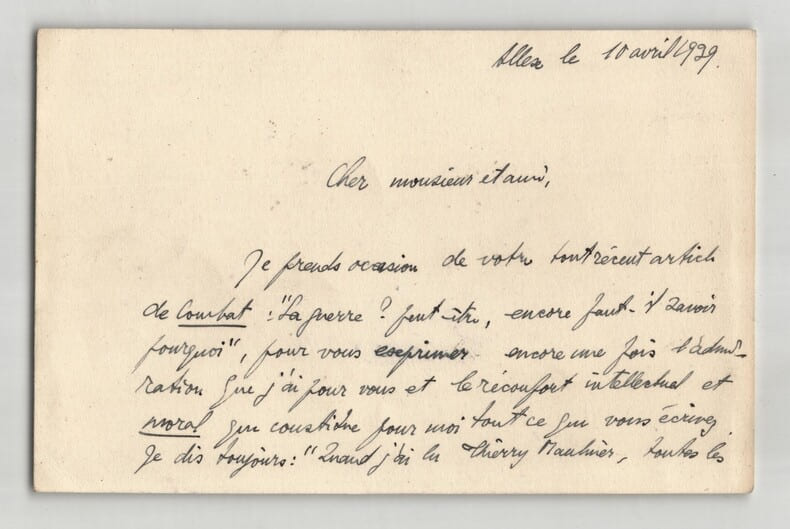 Allex le 10 avril 1939.
Cher monsieur et ami,
Je prends occasion de votre tout récent article
de Combat : "La guerre ? Peut-être, encore faut-il savoir
pourquoi", pour vous exprimer encore une fois l'admi-
ration que j'ai pour vous et le réconfort intellectuel et
moral que constitue pour moi tout ce que vous écrivez.
Je dis toujours : "Quand j'ai lu Thierry Maulnier, toutes les